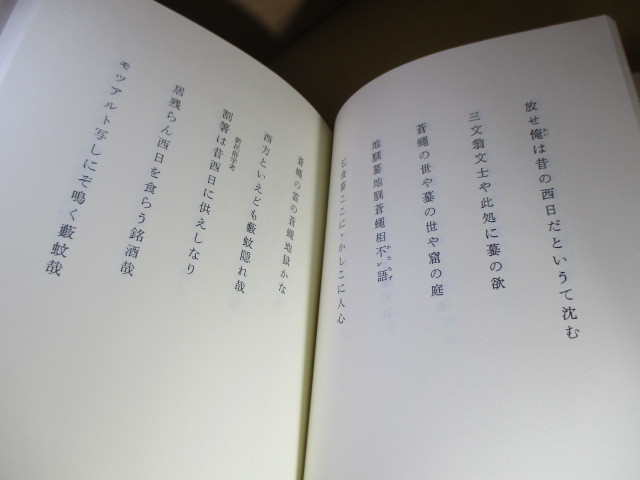 放せ俺は昔の西日だというて沈む
三文翁文士や此処に蟇の欲
蒼蠅の世や蟇の世や窟の庭
地獄蟇地獄蒼蠅相不レ語
乞食蟇ここに、かしこに人心
蒼蠅の霊の蒼蠅地獄かな
西方といえども藪蚊隠れ哉
割箸は昔西日に供えしなり
居残らん西日を食らう銘酒哉
モツアルト写しにぞ鳴く藪蚊哉